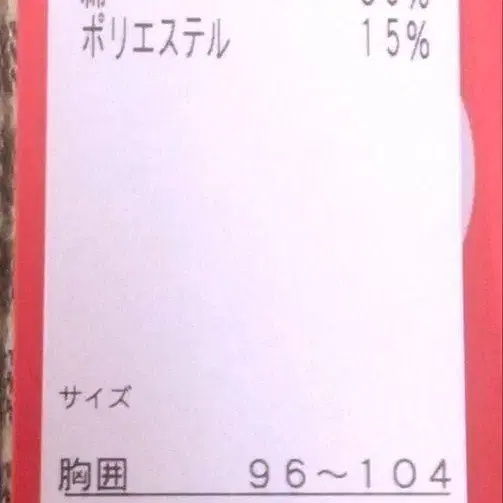 ポリエステル 15%
サイズ
胸囲 96～104